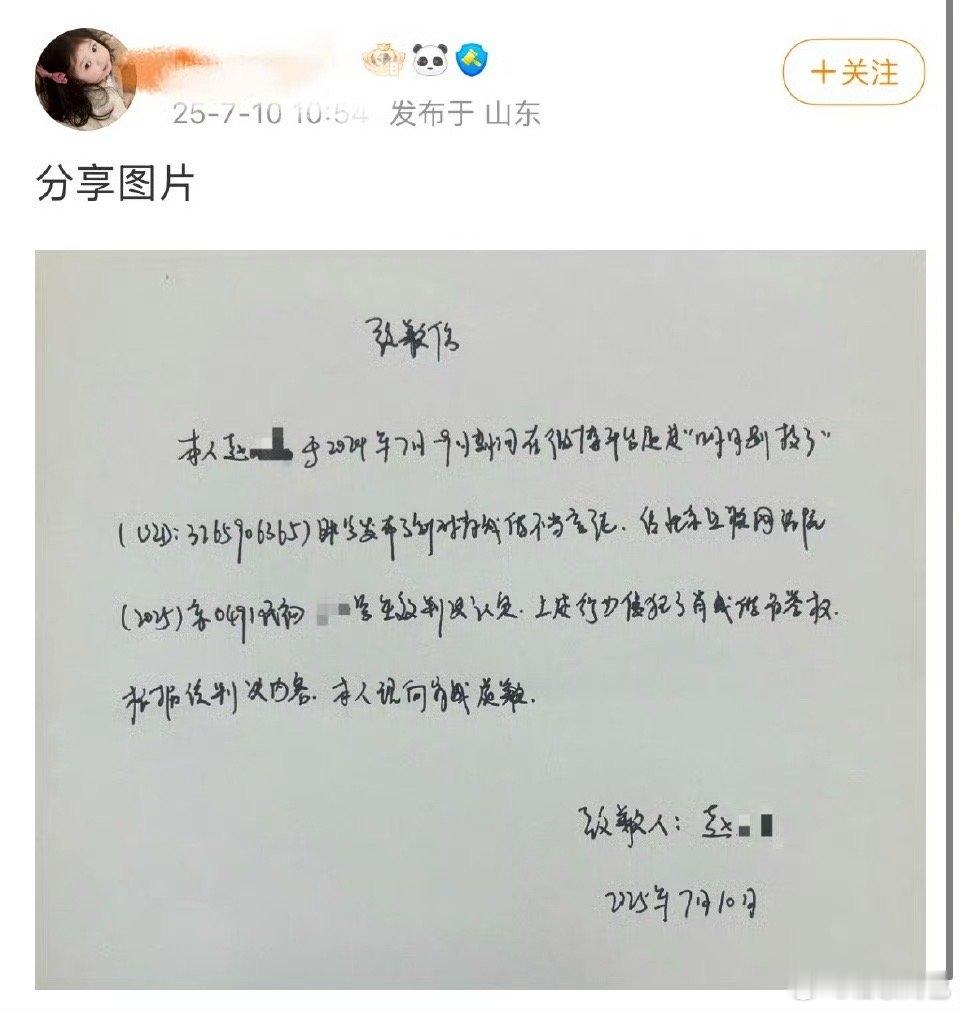 25-7-10 10:54 发布于 山东
+关注
分享图片
致歉信
本人赵 于2024年7月-9月期间在微博平台通过"时月别放了"
(UID:3265906365)账号发布了针对肖战的不当言论.经北京互联网法院
(2025)京0491民初 号生效判决认定.上述行为侵犯了肖战的名誉权.
根据该判决内容.本人现向肖战道歉.
致歉人:赵
2025年7月10日